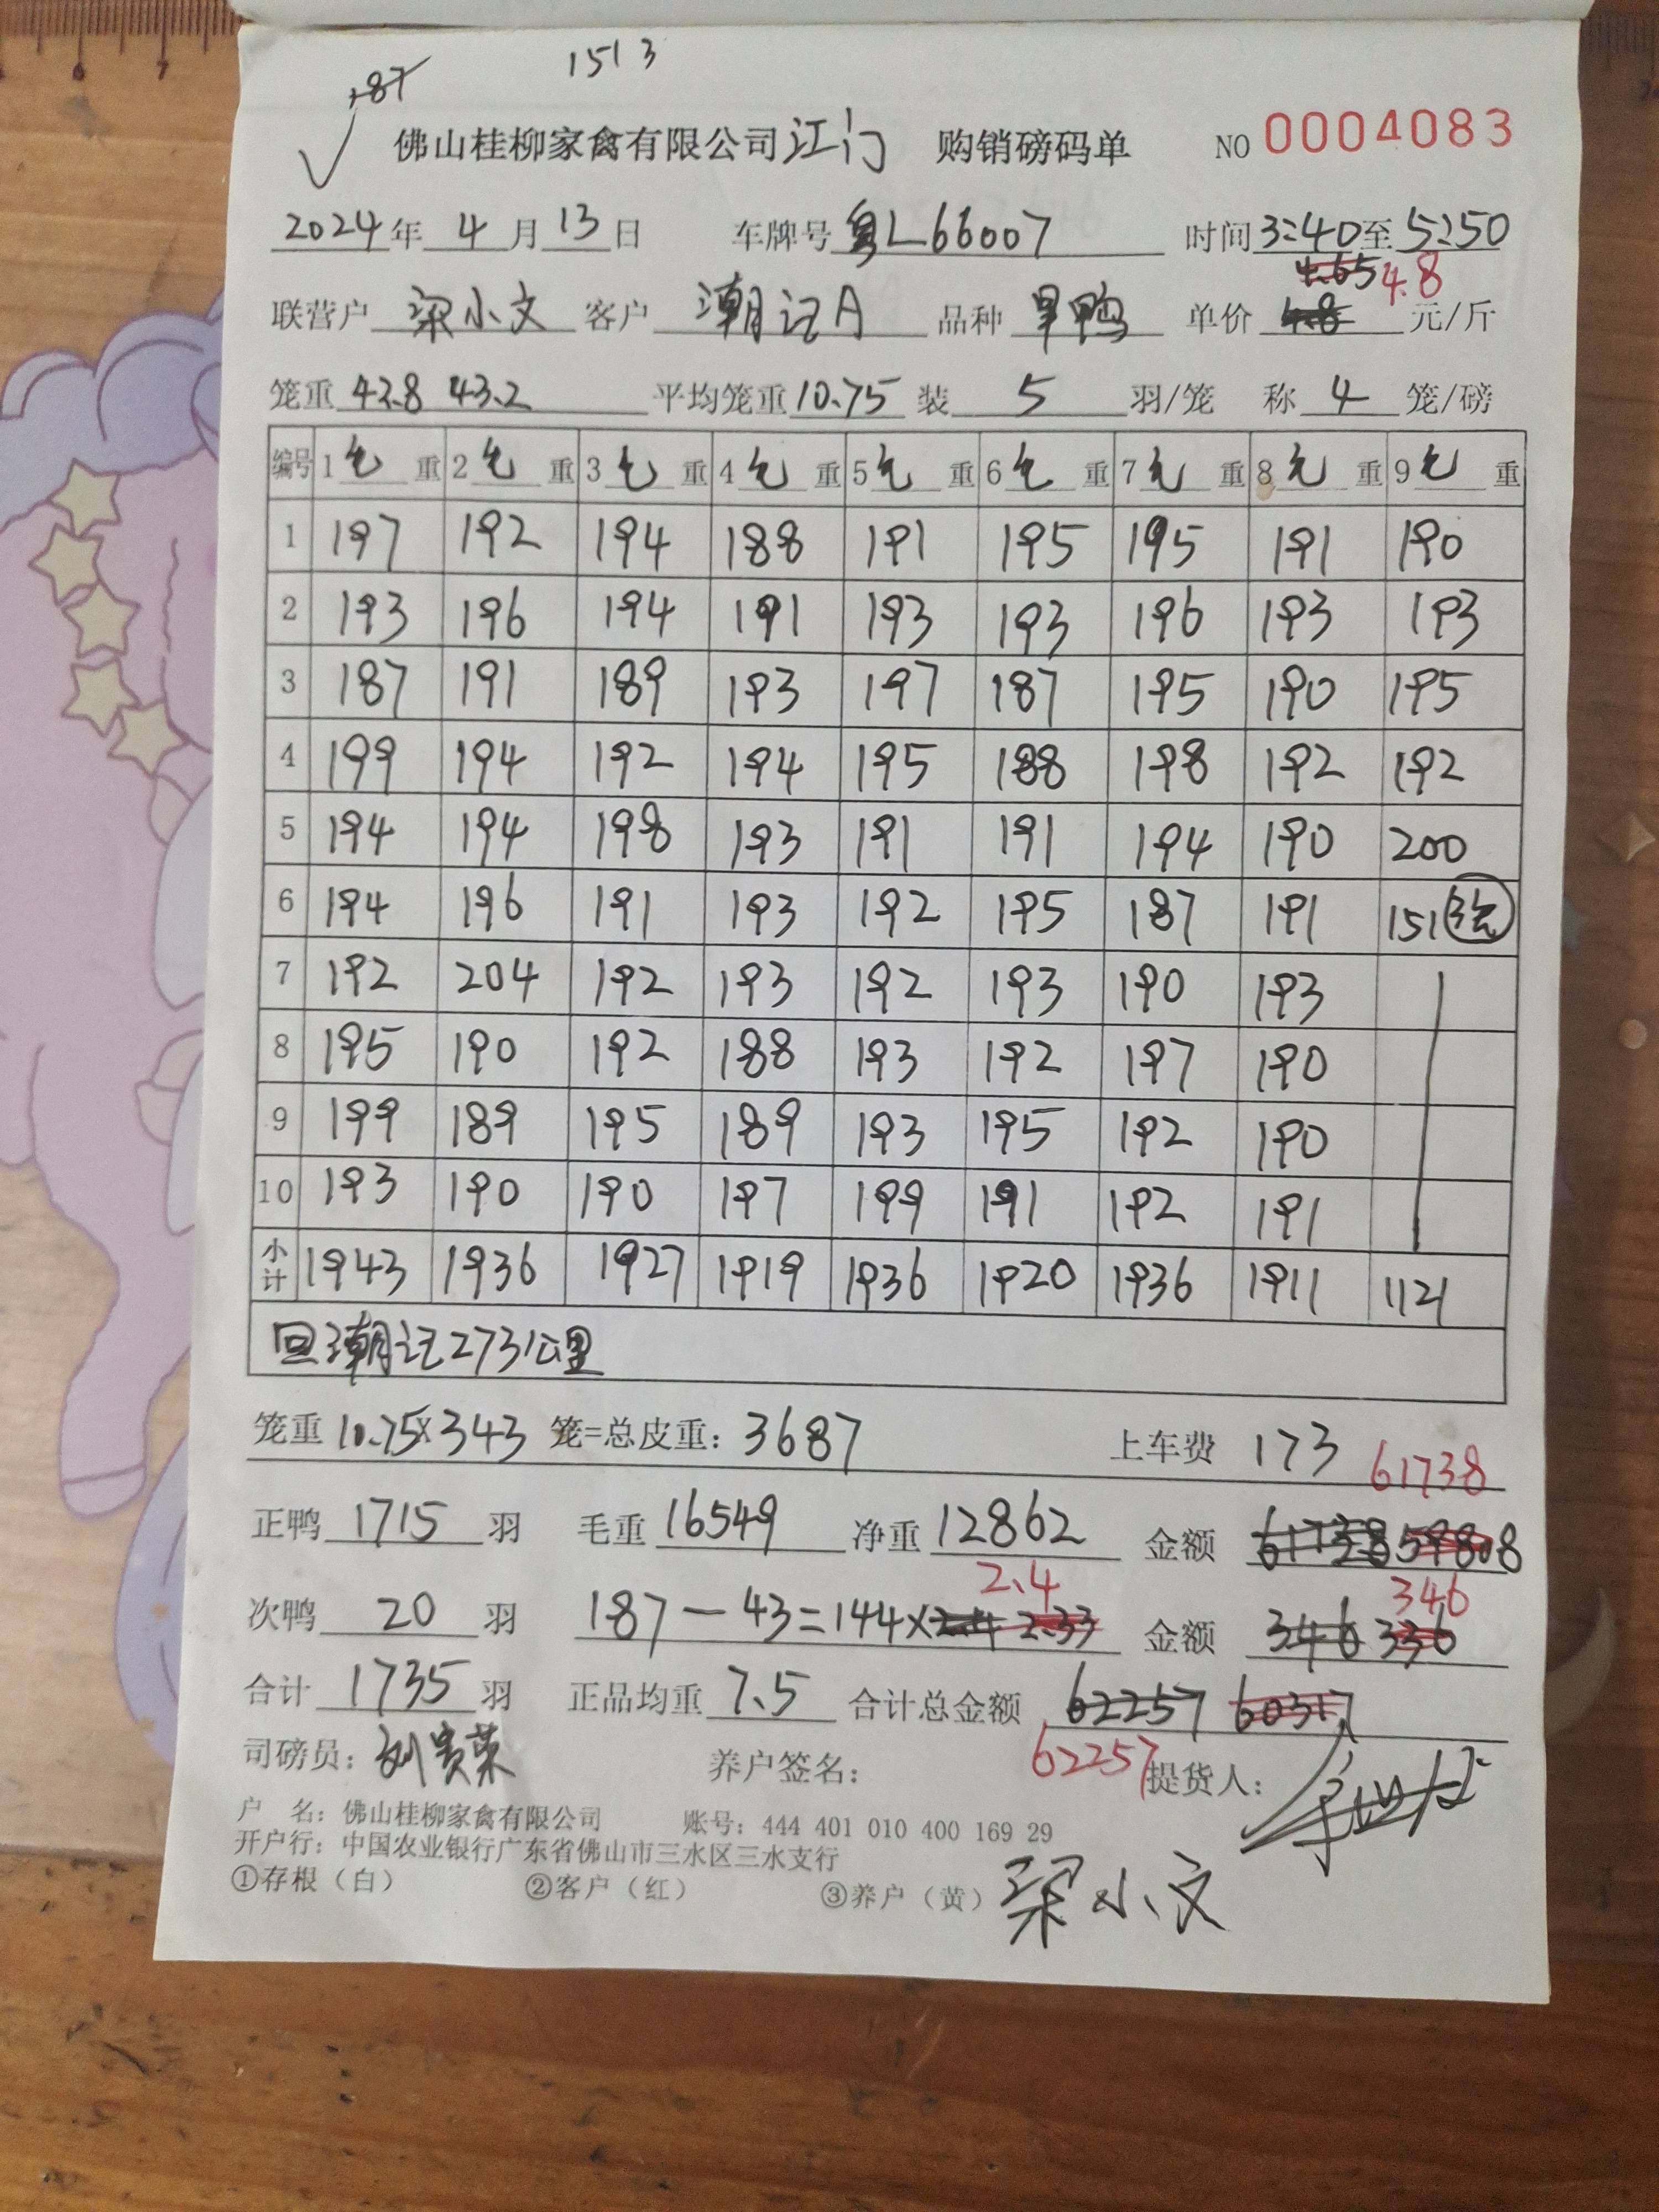 1513
187
佛山桂柳家禽有限公司江门 购销磅码单 NO 0004083
2024年4月13日 车牌号粤L66007 时间3:40至5:50
4.65 4.8
联营户 梁小文 客户 潮记A 品种 旱鸭 单价 4.8 元/斤
笼重 42.8 43.2 平均笼重10.75 装 5 羽/笼 称 4 笼/磅
编号 1毛重 2毛重 3毛重 4毛重 5毛重 6毛重 7毛重 8毛重 9毛重
1 197 192 194 188 191 195 195 191 190
2 193 196 194 191 193 193 196 193 193
3 187 191 189 193 197 187 195 190 195
4 199 194 192 194 195 188 198 192 192
5 194 194 198 193 191 191 194 190 200
6 194 196 191 193 192 195 187 191 151 3笼
7 192 204 192 193 192 193 190 193
8 195 190 192 188 193 192 197 190
9 199 189 195 189 193 195 192 190
10 193 190 190 197 199 191 192 191
小计 1943 1936 1927 1919 1936 1920 1936 1911 1121
回潮记273公里
笼重 10.75×343 笼=总皮重: 3687 上车费 173
61738
正鸭 1715 羽 毛重 16549 净重 12862 金额 61738 59808
2.4 346
次鸭 20 羽 187-43=144×2.4 2.33 金额 346 336
合计 1735 羽 正品均重 7.5 合计总金额 62257 60317
62257
司磅员: 刘贵荣 养户签名: 提货人:
户 名: 佛山桂柳家禽有限公司 账号: 444 401 010 400 169 29
开户行: 中国农业银行广东省佛山市三水区三水支行
①存根（白） ②客户（红） ③养户（黄） 梁小文